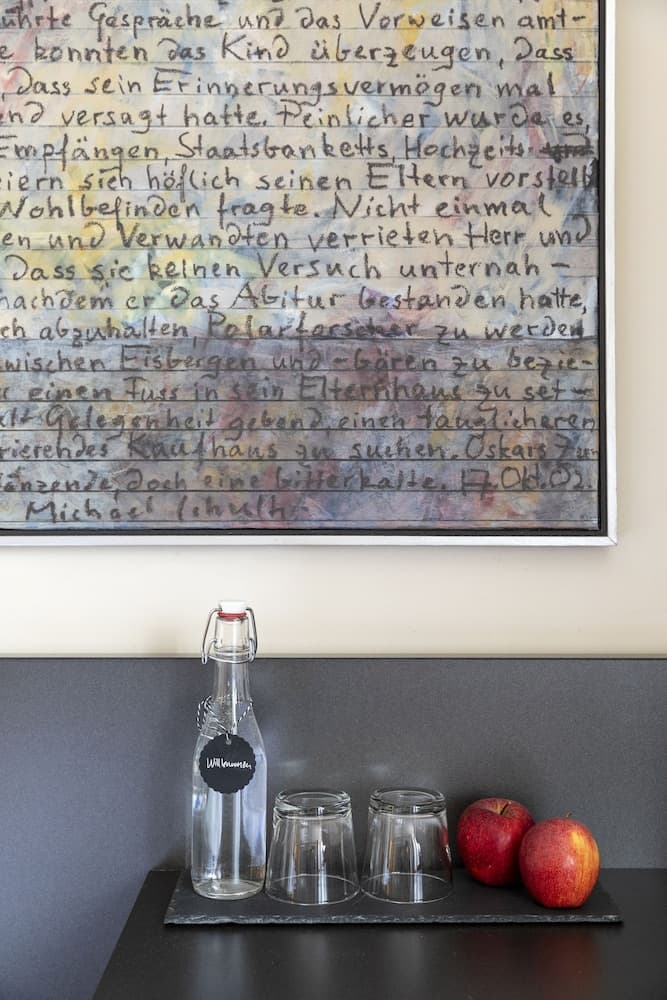 ührte Gespräche und das Vorweisen amt-
e konnten das Kind überzeugen, dass
, dass sein Erinnerungsvermögen mal
end versagt hatte. Peinlicher wurde es,
Empfängen, Staatsbanketts, Hochzeits
eiern sich höflich seinen Eltern vorstellt
Wohlbefinden fragte. Nicht einmal
en und Verwandten verrieten Herr und
Dass sie keinen Versuch unternah-
nachdem er das Abitur bestanden hatte,
ch abzuhalten, Polarforscher zu werden
zwischen Eisbergen und -bären zu bezie-
einen Fuss in sein Elternhaus zu set-
alt Gelegenheit gebend, einen tauglicheren
rierendes Kaufhaus zu suchen. Oskars
änzende, doch eine bitterkalte. 17. Okt. 02.
Michael Schulth
Willkommen